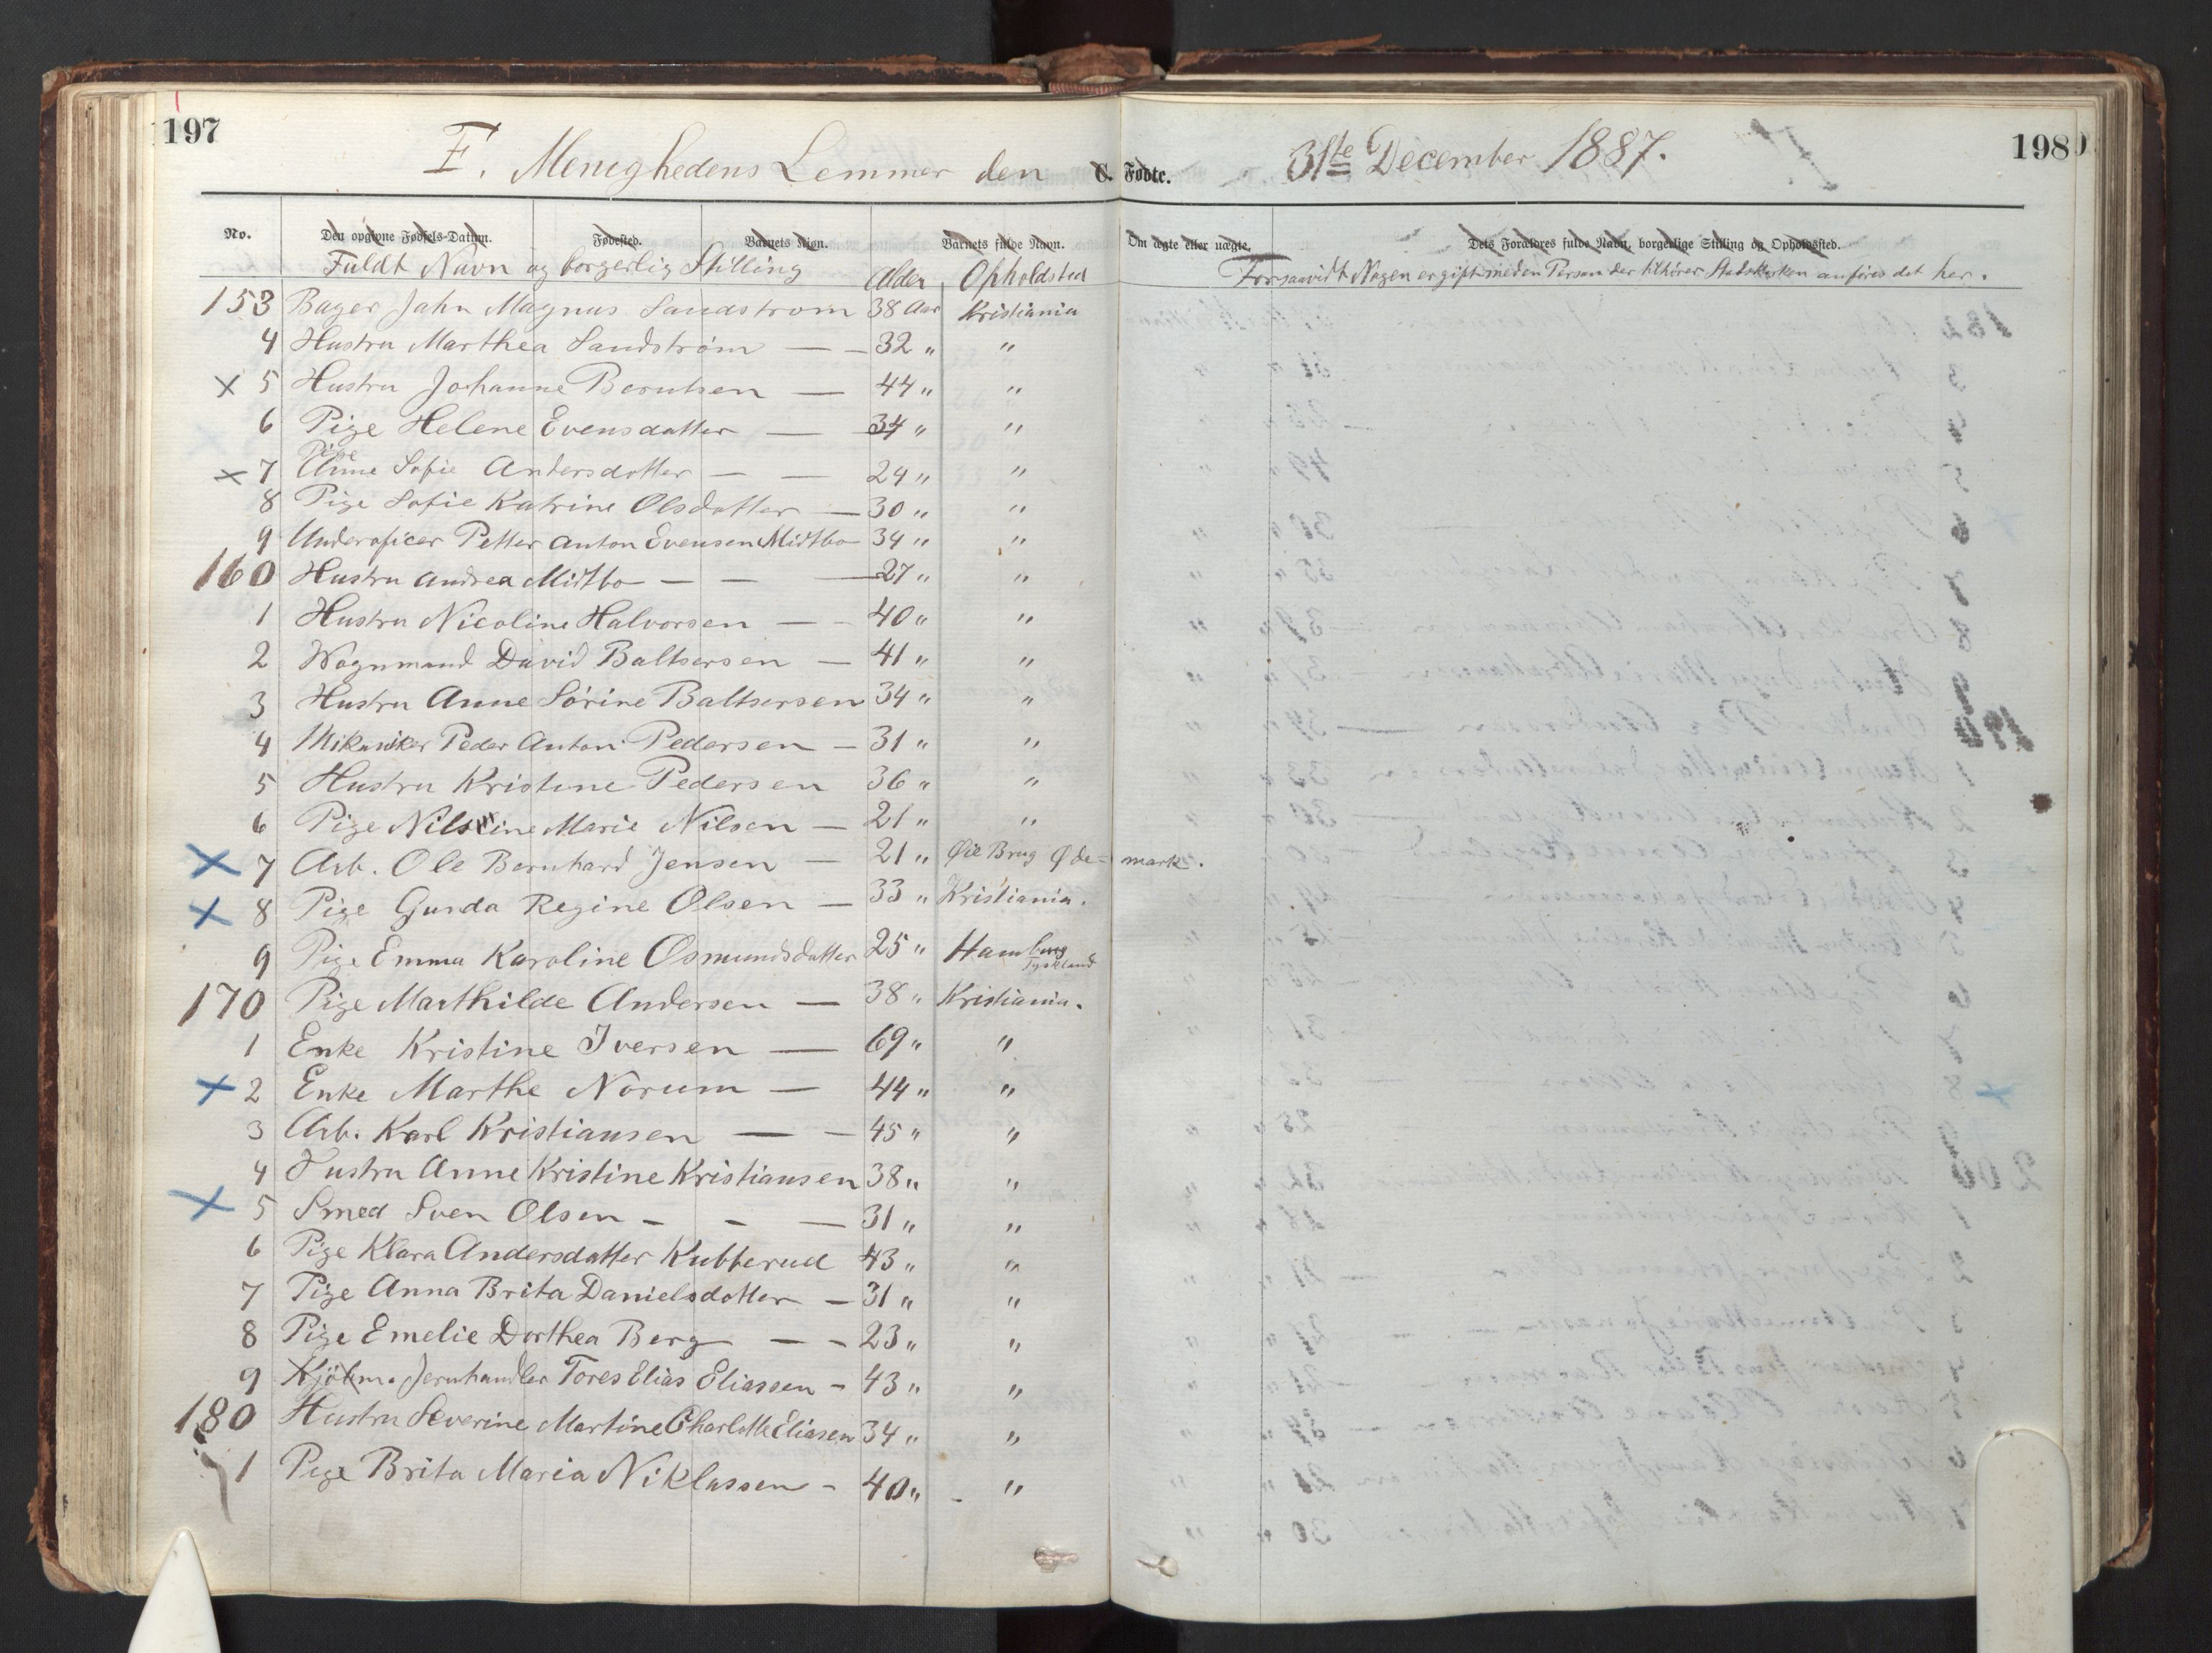 197
198
F. Menighedens Lemmer den 31te December 1887.
C. Fødte.
No. Den opgivne Fødsels-Datum. Fødested. Barnets Kjøn. Barnets fulde Navn. Om ægte eller uægte. Dets Forældres fulde Navn, borgerlige Stilling og Opholdssted.
Fuldt Navn og borgerlig Stilling Alder Opholdsted Forsaavidt Nogen er gift med en Person der tilhører Statskirken anføres det her.
153 Bager Jahn Magnus Sandstrom 38 Aar Kristiania
4 Hustru Marthea Sandstrøm — — 32 " "
x 5 Hustru Johanne Berntsen — 44 " "
6 Pige Helene Evensdatter — 34 " "
Pige
x 7 Anne Sofie Andersdatter — — 24 " "
8 Pige Sofie Katrine Olsdatter — 30 " "
9 Underoficer Petter Anton Evensen Midtbo 34 " "
160 Hustru Andrea Midtbo — — — 27 " "
1 Hustru Nicoline Halvorsen — - 40 " "
2 Wognmand David Baltsersen — 41 " "
3 Hustru Anne Sørine Baltsersen 34 " "
4 Mikaniker Peder Anton Pedersen — 31 " "
5 Hustru Kristine Pedersen 36 " "
6 Pige Nilsine Marie Nilsen — 21 " "
x 7 Arb. Ole Bernhard Jensen — 21 " Øie Brug Øde- mark.
x 8 Pige Gunda Regine Olsen — 33 " Kristiania.
9 Pige Emma Karoline Osmundsdatter 25 " Hamburg
Tyskland
170 Pige Marthilde Andersen — 38 " Kristiania.
1 Enke Kristine Iversen — 69 " "
x 2 Enke Marthe Norum — 44 " "
3 Arb. Karl Kristiansen — — 45 " "
4 Hustru Anne Kristine Kristiansen 38 " "
x 5 Smed Sven Olsen - - — 31 " "
6 Pige Klara Andersdatter Kubberud 43 " "
7 Pige Anna Brita Danielsdotter — 31 " "
8 Pige Emelie Dorthea Berg — - 23 " "
9 Kjöbm. Jernhandler Tores Elias Eliassen - 43 " "
180 Hustru Severine Martine Charlotte Eliasen 34 " "
1 Pige Brita Maria Niklassen - 40 " - "